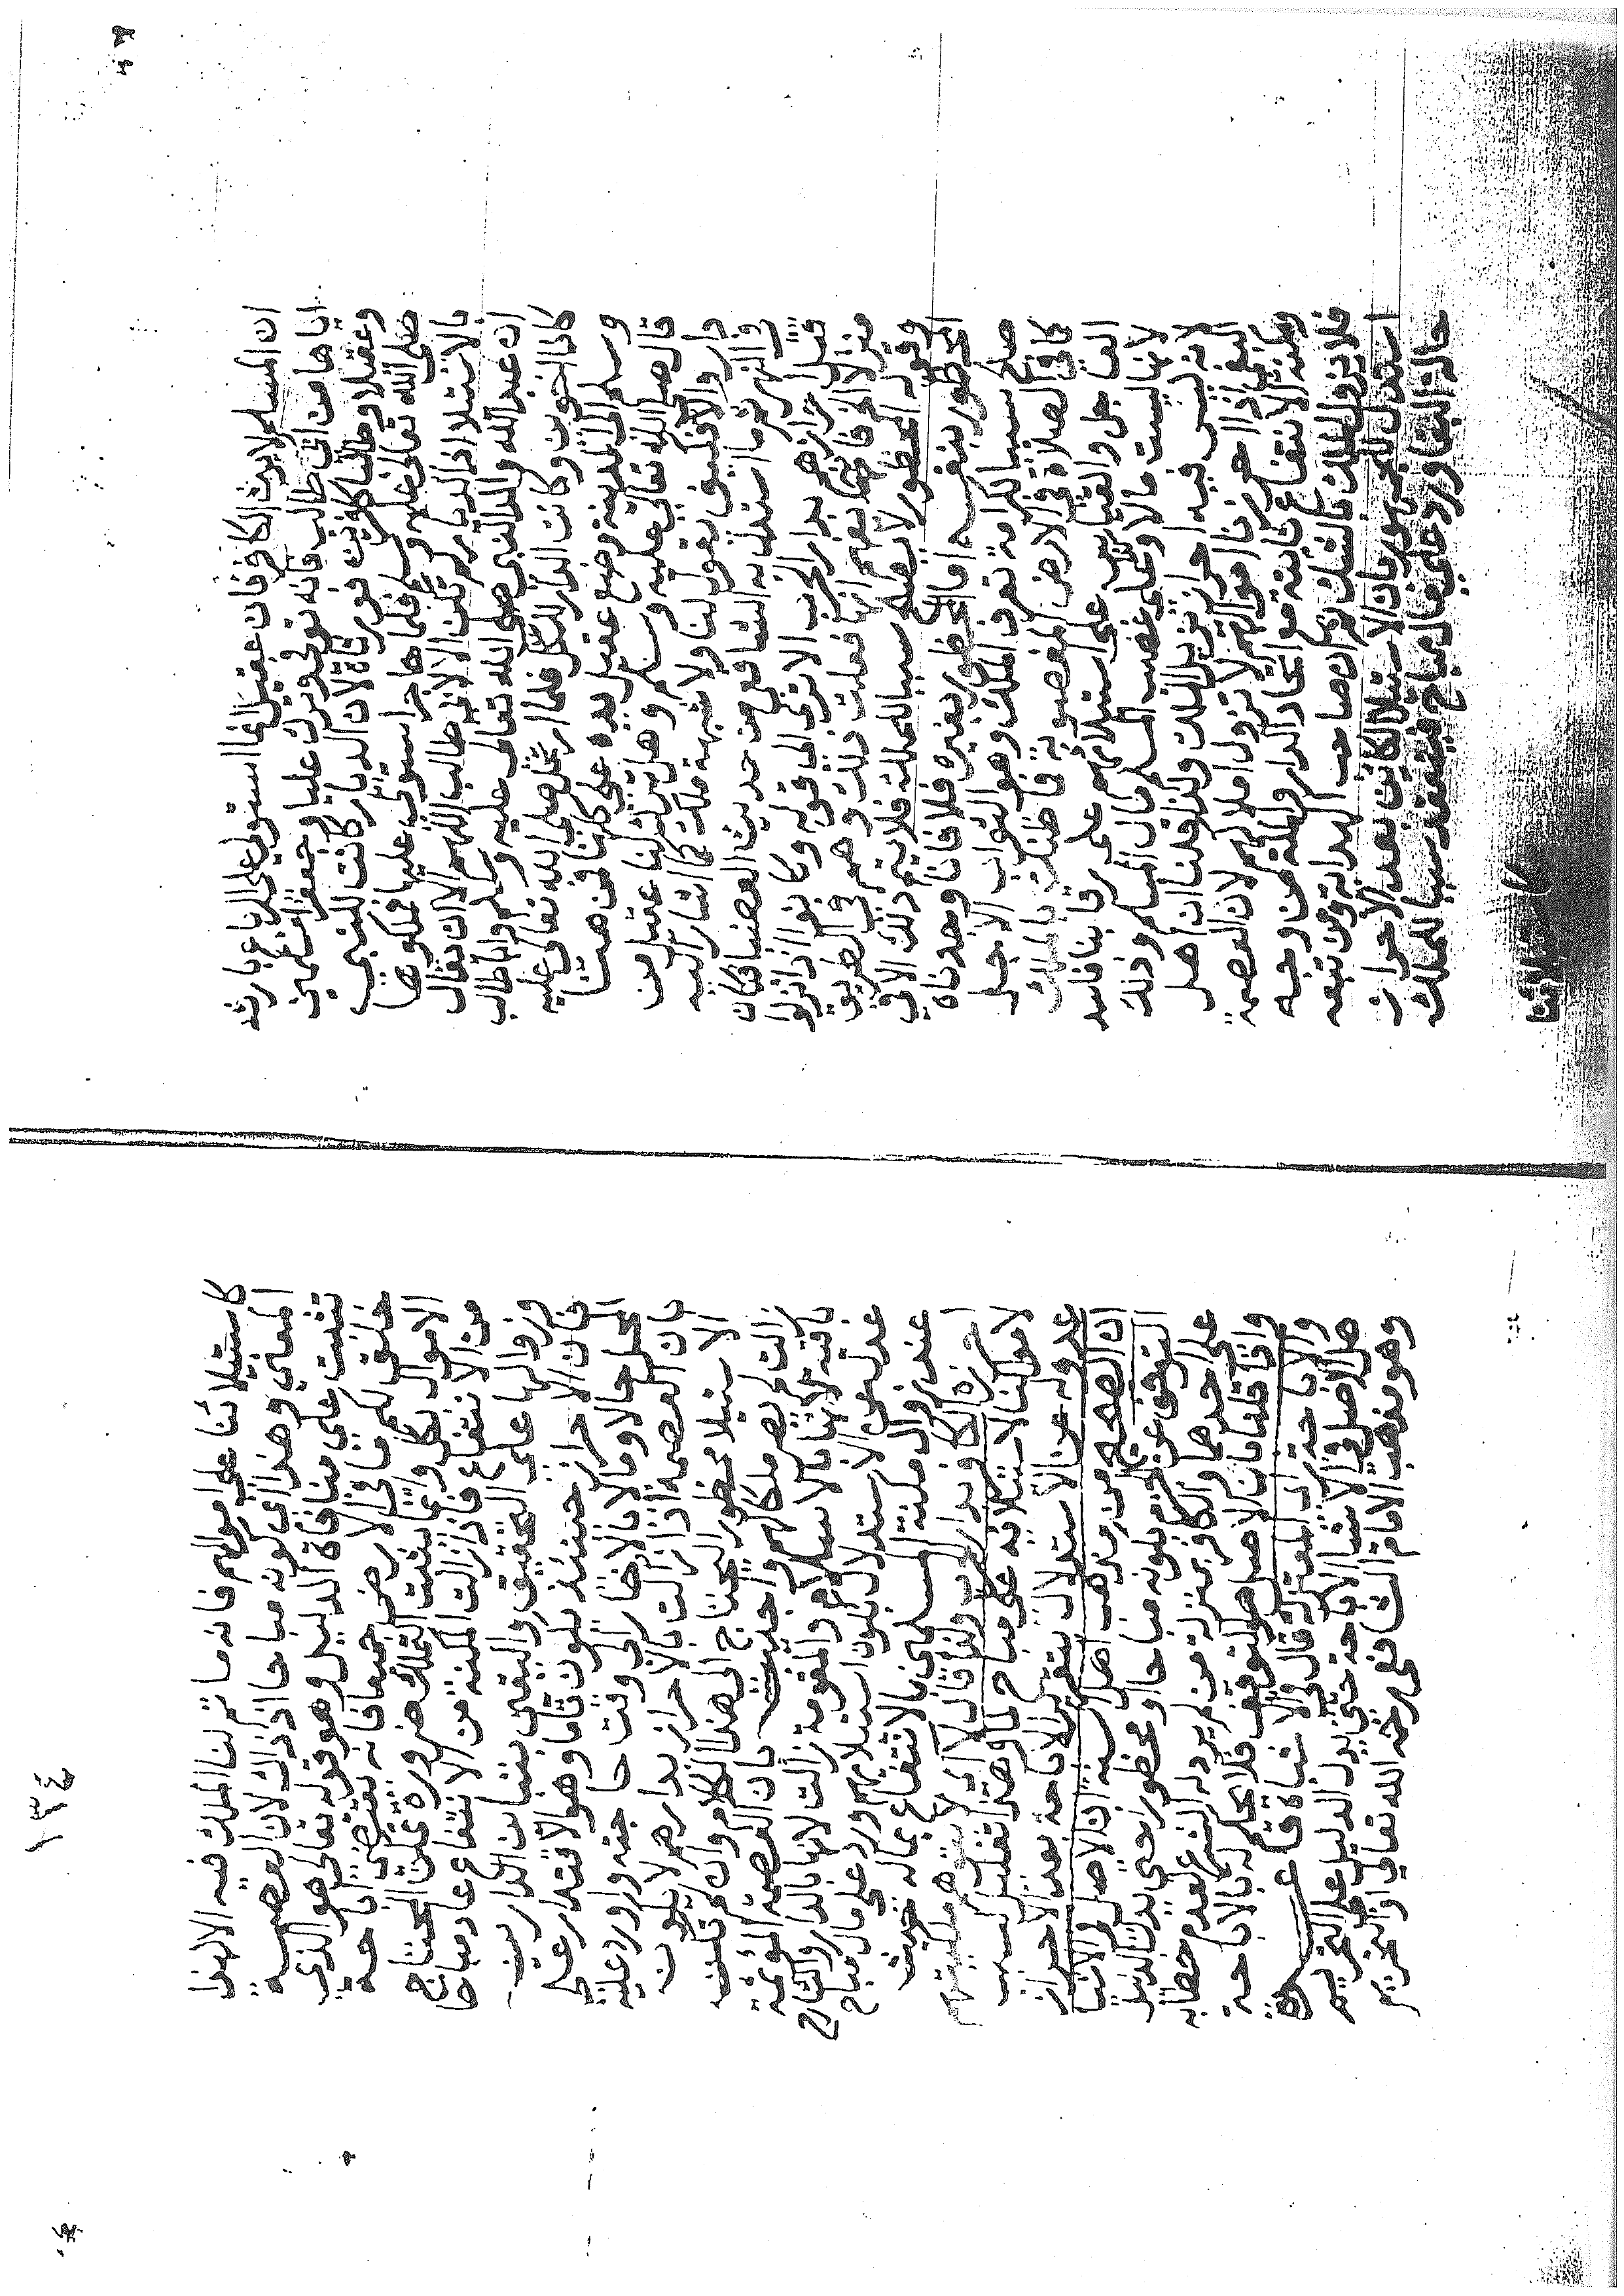 ان المسلم لا يرث الكافر فان عقيلا انما استولى على الرباع بارثه
اياها من ابى طالب فانه توفى وترك عليا وجعفرا مسلمين
وعقيلا وطالبا كافرين فورثاه لان الديار كانت للنبى
صلى الله تعالى عليه وسلم فلما هاجر استولى عليها فملكوها
بالاستيلا اذ الديار لم تكن الا لابى طالب اللهم الا ان يقال
ان عبد الله والد النبى صلى الله تعالى عليه وسلم وابا طالب
كانا اخوين وكانت الدار للكل فلما ارتحل صلى الله تعالى عليه
وسلم الى المدينة وضع عقيل يده على كلها فمن هنا
قال صلى الله تعالى عليه وسلم وهل ترك لنا عقيل من
دار والا فكيف يقول لنا ولا شبهة ملك كما اشار اليه
فى النهر ثم ما استدل به الشافعى من حديث العضبا فكان
قبل احرازهم بدار الحرب الا ترى الى قوله وكانوا اذا نزلوا
منزلا الخ فانه يفهم انها فعلت ذلك وهم فى الطريق
وقوله المحظور لا يصلح سببا للملك فلا يتم ذلك الا فى
المحظور بنفسه اما المحظور بغيره فلا فانا وجدناه
صلح سببا لكرامة تفوق الملك وهو الثواب الاجل
كما فى الصلاة فى الارض المغصوبة فما ظنك بالملك
العاجل والقياس على استيلائهم على رقابنا فاسد
لانها ليست مالا وعلى غصب المسلم مال المسلم وذلك
لانه ليس فيه احراز يزيل الملك ولذا قلنا ان اهل
البغى اذا احرزوا اموالهم لا تزول املاكهم لان العصمة
ومكنة الانتفاع ثابتة مع اتحاد الدار والملة من وجه
فلا يزول الملك بالشك ثم ان صاحب الهداية ومن تبعه
استدل للجمهور بان الاستيلا كائن بعد الاحراز
حالة البقا ورد على مال مباح فينعقد سببا للملك
كاستيلائنا
كاستيلائنا على اموالهم فانه ما تم لنا الملك فيه الا لهذا
المعنى وهذا اى كونه مباحا اذ ذاك لان العصمة
تثبت على منافاة الدليل وهو قوله تعالى هو الذى
خلق لكم ما فى الارض جميعا فانه يقتضى اباحة
الاموال لكل وانما يثبت التملك ضرورة تمكن المحتاج
من الانتفاع فاذا زالت المكنة من الانتفاع عاد مباحا
وزوالها على التحقيق واليقين بتباين الدارين
فان الاحراز حينئذ يكون تاما وهو الاقتدار على
المحل حالا ومالا بالادخار الى وقت حاجته واورد عليه
بان العصمة اذا زالت بالاحراز بدارهم لا يكون
الاستيلا محظورا ليحتاج الى هذا الكلام وان لم تكن
زالت لم يصر ملكا لهم واجيب بان العصمة المؤثمة
باقية لانها بالاسلام والمقومة زالت لانها بالدار والشارح
عدل عن الاستدلال بكون استيلائهم ورد على مال مباح
عند زوال مكنة المسلمين بالانتفاع بماله حيث
احرزه الكافر بدار الحرب ولذا قال لا اى لا يتم ملكيتهم
لاموالنا لاستيلائه على مباح لما وتصدا تعليل لسبب
عدوله عن الاستدلال بتقرير الاباحة بعد الاحراز
ان الصحيح من مذهب اهل السنة ان الاصل فى الاشيا
التوقف عن الحكم بكونه مباحا او محظورا حتى يدل الدليل
على احدهما والكافر بمنزلة من لم يرد له الشرع لعدم خطابه
واذا قلنا بان الاصل هو التوقف فلا يحكم له بالاباحة
والاباحة رأى المعتزلة قال فى الاشباه قاعدة
هل الاصل فى الاشيا الاباحة حتى يدل الدليل على التحريم
وهو مذهب الامام الشافعى رحمه الله تعالى او التحريم
١٣٤